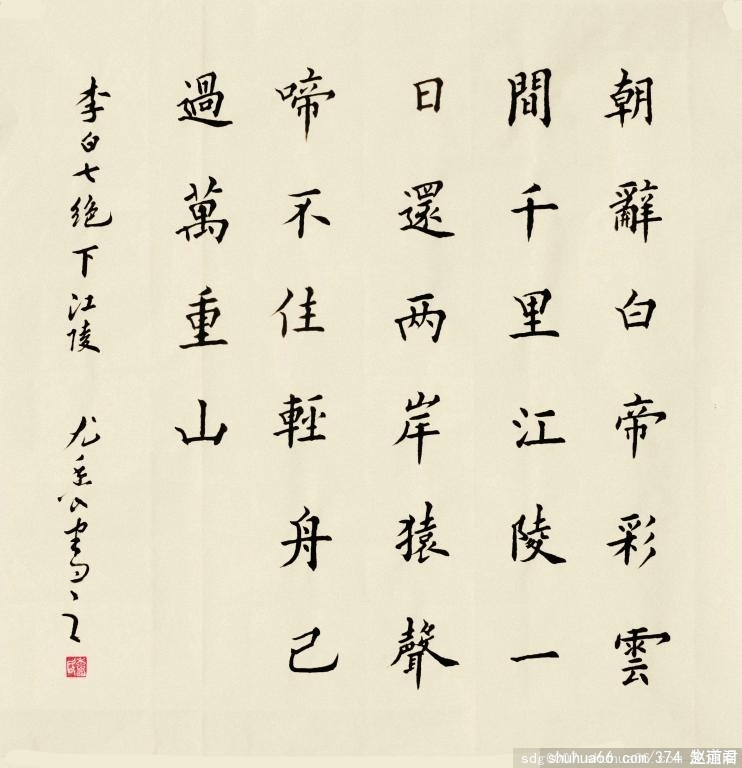 朝辭白帝彩雲
間千里江陵一
日還两岸猿聲
啼不住輕舟已
過萬重山
李白七绝下江陵
shuhua66 com/374